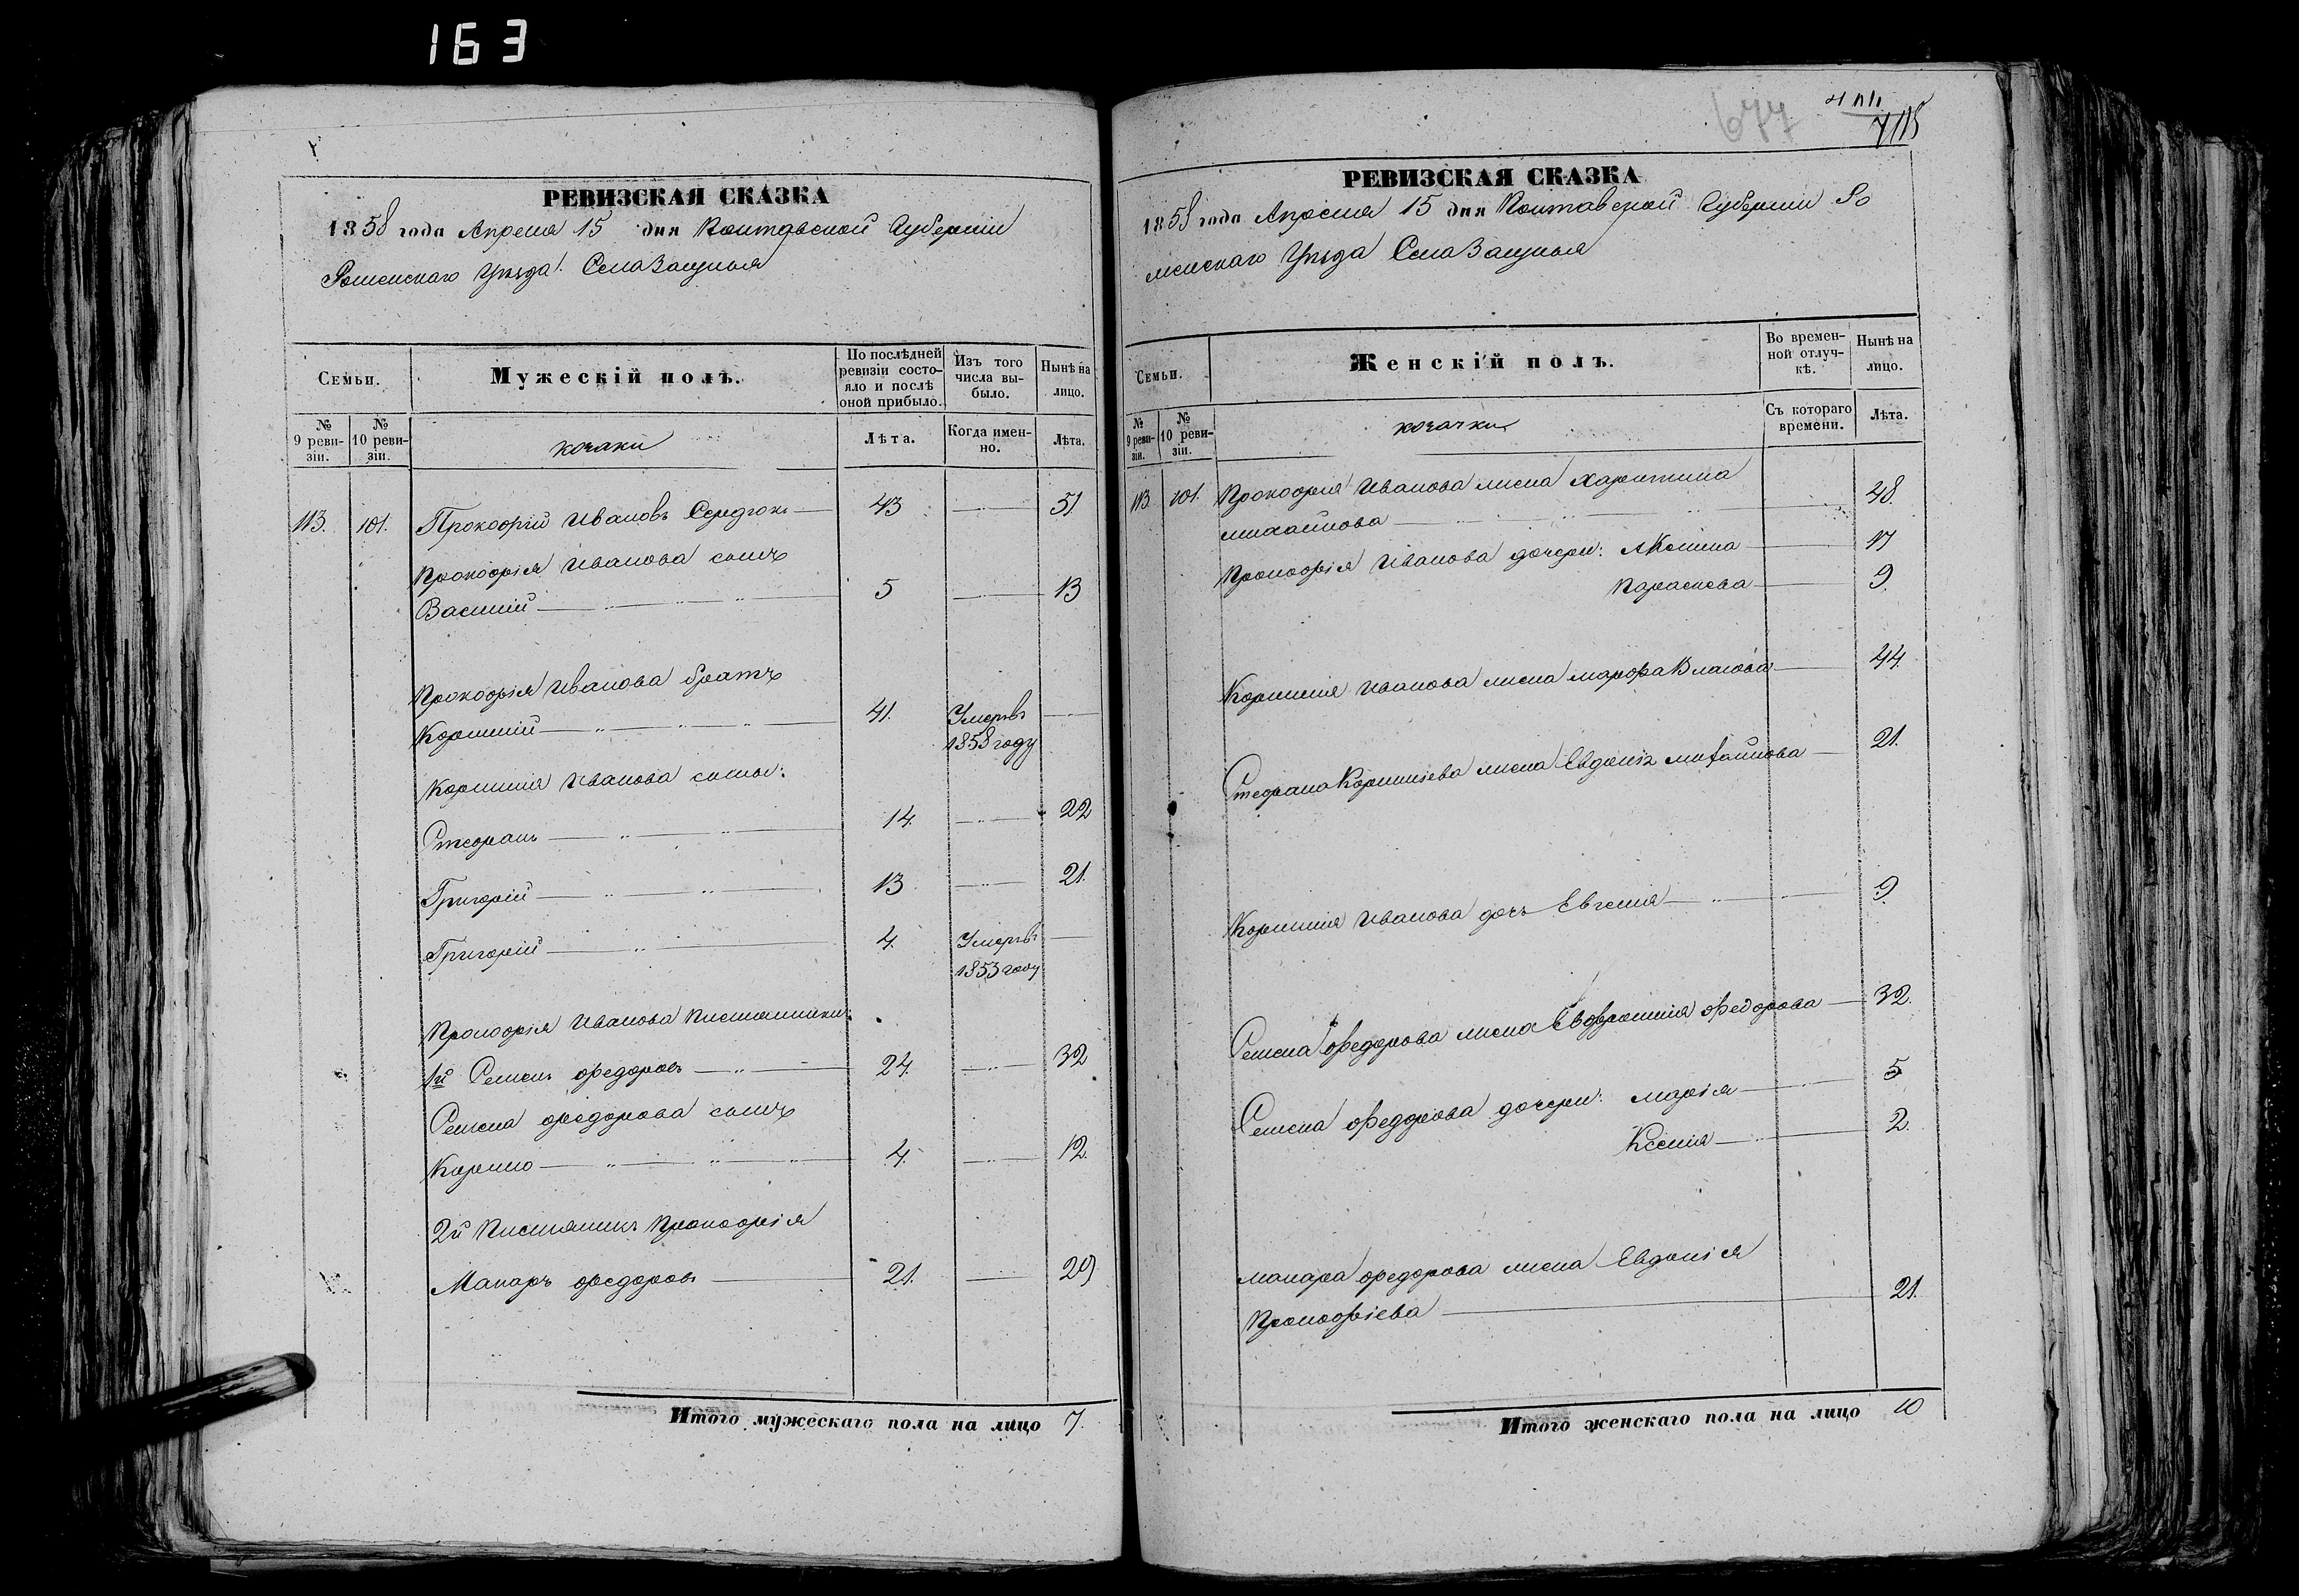 163
РЕВИЗСКАЯ СКАЗКА
1858 года Апреля 15 дня Полтавской Губерніи
Роменскаго Уѣзда Села Защыпья
Семьи.
Мужескій полъ.
По послѣдней ревизіи состояло и послѣ оной прибыло.
Изъ того числа выбыло.
Нынѣ на лицо.
№ 9 ревизіи.
№ 10 ревизіи.
козаки
Лѣта.
Когда именно.
Лѣта.
113. 101. Прокофій Ивановъ Середюкъ 43 51
Прокофія Иванова сынъ
Василій 5 13
Прокофія Иванова братъ
Корнилій 41. Умеръ въ
1858 году
Корнилія Иванова сыны:
Стефанъ 14. 22
Григорій 13 21.
Григорій 4. Умеръ въ
1853 году
Прокофія Иванова племянники:
1й Семенъ Федоровъ 24. 32
Семена Федорова сынъ
Кирило 4. 12.
2й племяникъ Прокофія
Макаръ Федоровъ 21. 29
Итого мужескаго пола на лицо 7.
677
715
РЕВИЗСКАЯ СКАЗКА
1858 года Апреля 15 дня Полтавской Губерніи Ро
менскаго Уѣзда Села
Семьи.
Женскій полъ.
Во временной отлучкѣ.
Нынѣ на лицо.
№ 9 ревизіи.
№ 10 ревизіи.
козачки
Съ котораго времени.
Лѣта.
113 101. Прокофія Иванова жена Харитина
Михайлова 48.
Прокофія Иванова дочери: Акелина 17
Параскева 9.
Корнилія Иванова жена Марфа Власова 44.
Стефана Корниліева жена Евдокія Михайлова 21.
Корнилія Иванова дочь Евгенія 9.
Семена Федорова жена Евфросинія Федорова 32.
Семена Федорова дочери: Марія 5
Ксенія 2.
Макара Федорова жена Евдокія
Прокофіева 21.
Итого женскаго пола на лицо 10